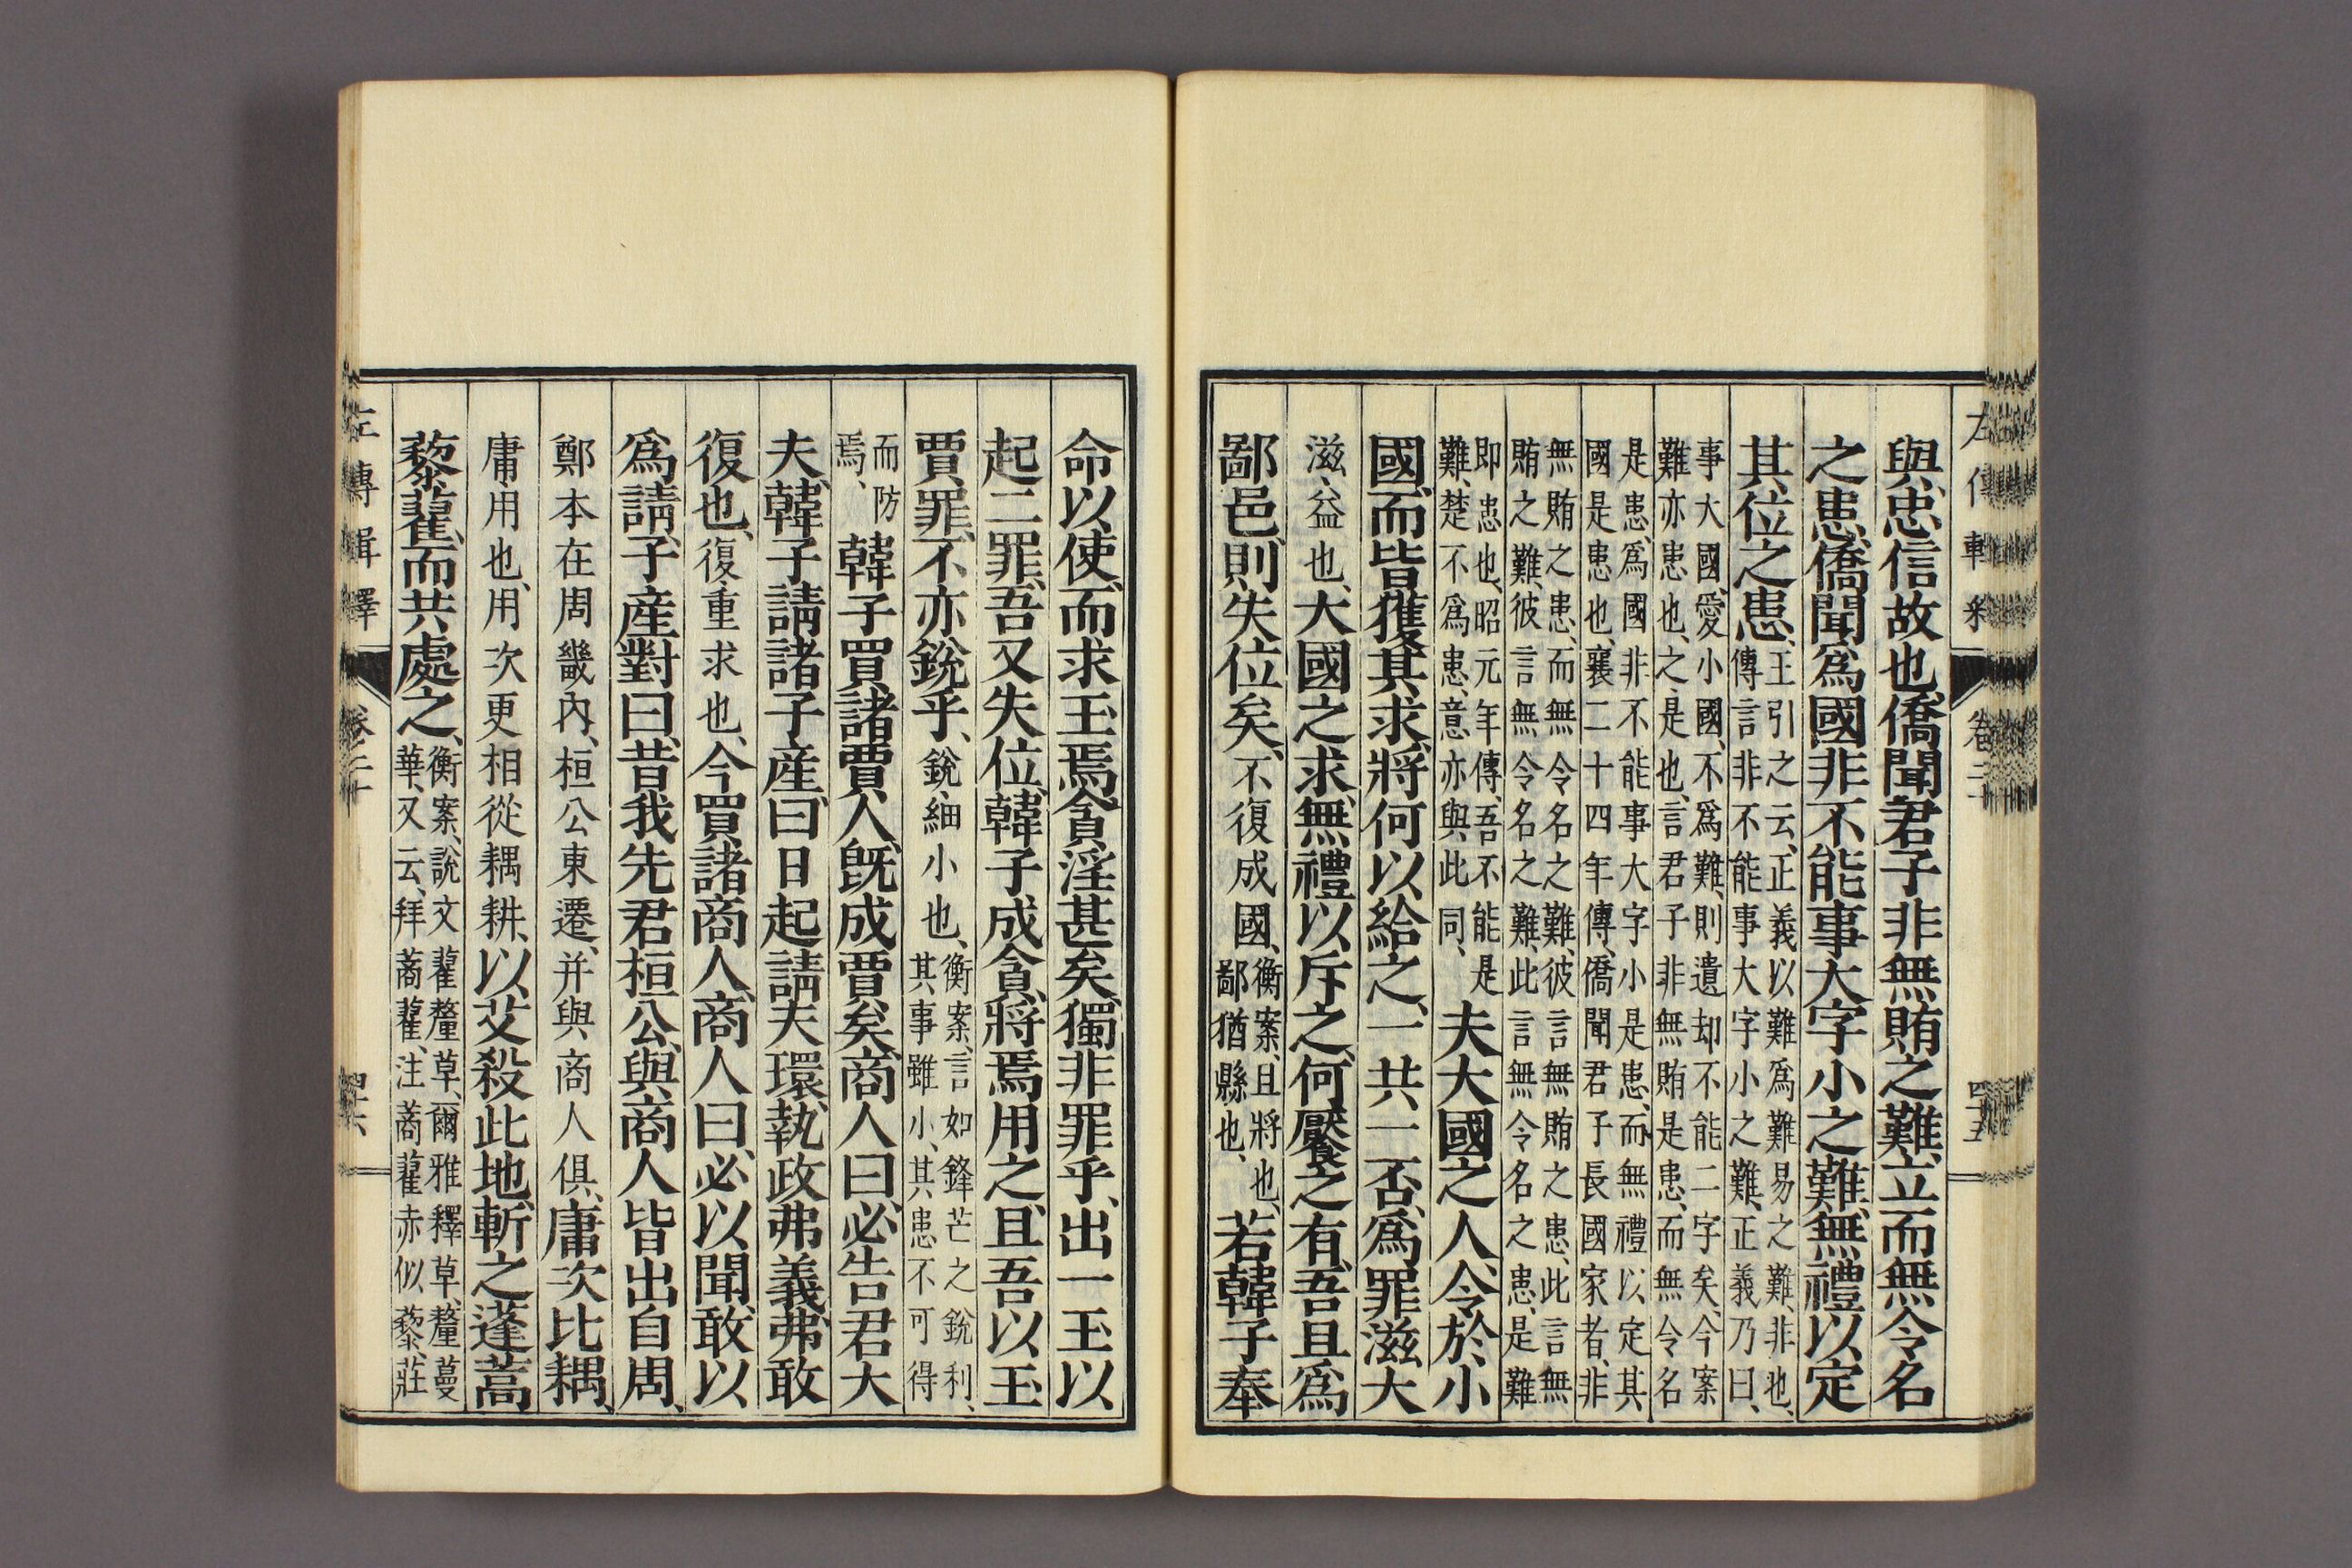 與、忠信故也、僑聞君子非無賄之難、立而無令名
之患、僑聞爲國非不能事大字小之難、無禮以定
其位之患、
王引之云、正義以難爲難易之難、非也、
傳言非不能事大字小之難、正義乃曰、
事大國、愛小國、不爲難、則遺却不能二字矣、今案
難亦患也、之、是也、言君子非無賄是患、而無令名
是患、爲國非不能事大字小是患、而無禮以定其
國是患也、襄二十四年傳、僑聞君子長國家者、非
無賄之患、而無令名之難、彼言無賄之患、此言無
賄之難、彼言無令名之難、此言無令名之患、是難
即患也、昭元年傳、吾不能是
難、楚不爲患、意亦與此同、
夫大國之人、令於小
國、而皆獲其求、將何以給之、一共一否、爲罪滋大
滋、益也、大國之求、無禮以斥之、何饜之有、吾且爲
鄙邑、則失位矣、不復成國、
衡案、且將也、
鄙猶縣也、
若韓子奉
命以使、而求玉焉、貪淫甚矣、獨非罪乎、出一玉以
起二罪、吾又失位、韓子成貪、將焉用之、且吾以玉
賈罪、不亦銳乎、銳、細小也、
衡案、言如鋒芒之銳利、
其事雖小、其患不可得
而防
焉、
韓子買諸賈人、旣成賈矣、商人曰、必告君大
夫、韓子請諸子産曰、日起請夫環、執政弗義、弗敢
復也、復、重求也、今買諸商人、商人曰、必以聞、敢以
爲請、子産對曰、昔我先君桓公、與商人皆出自周、
鄭本在周畿內、桓公東遷、并與商人俱、庸次比耦、
庸、用也、用次更相從耦耕、以艾殺此地、斬之蓬蒿
藜藿、而共處之、
衡案、說文藋釐草、爾雅釋草、釐蔓
華、又云、拜蔏藋、注蔏藋赤似藜、莊
左傳輯釋
卷二十